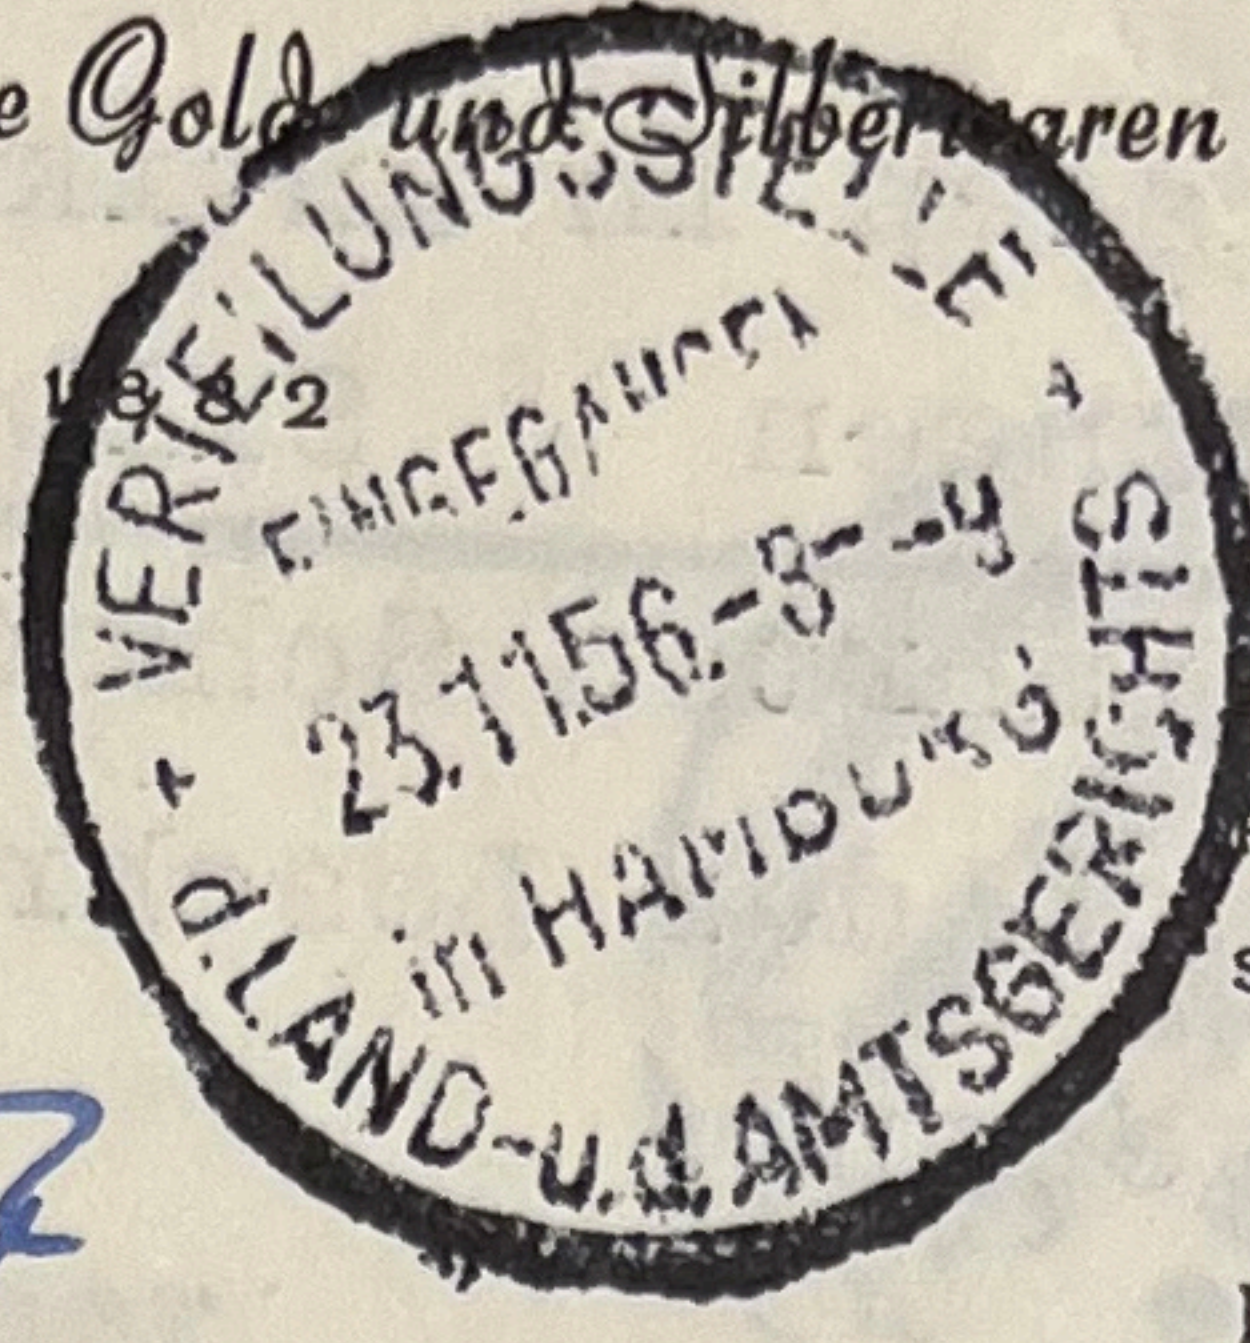 e Gold- und Silberwaren
VERTEILUNGSSTELLE
& 2
EINGEGANGEN
23.11.56.-8-- -9
in HAMBURG
D.LAND-u.d.AMTSGERICHTS
s